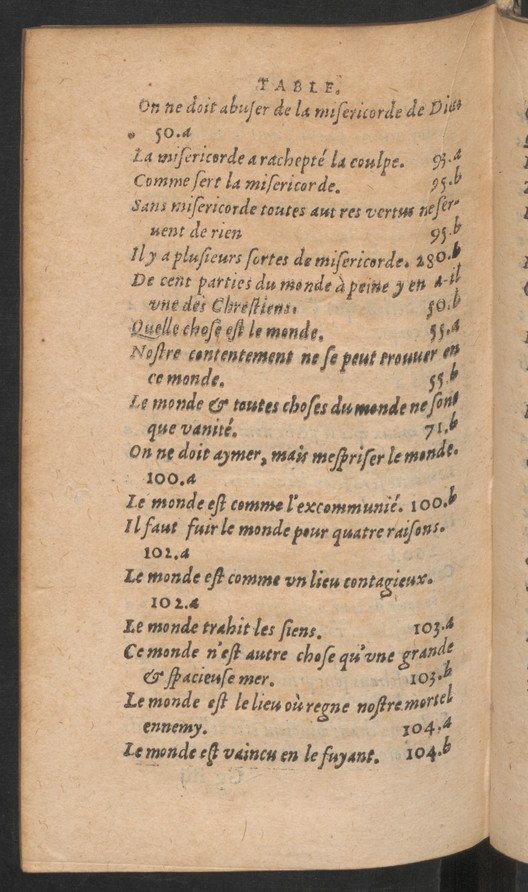 TABLE.
On ne doit abuser de la misericorde de Dieu
50.a
La misericorde a rachepté la coulpe. 95.a
Comme sert la misericorde. 95.b
Sans misericorde toutes autres vertus ne ser-
uent de rien 95.b
Il y a plusieurs sortes de misericorde. 280.b
De cent parties du monde à peine y en a-il
vne des Chrestiens. 50.b
Quelle chose est le monde. 55.a
Nostre contentement ne se peut trouuer en
ce monde. 55.b
Le monde & toutes choses du monde ne sont
que vanité. 71.b
On ne doit aymer, mais mespriser le monde.
100.a
Le monde est comme l'excommunié. 100.b
Il faut fuir le monde pour quatre raisons.
102.a
Le monde est comme vn lieu contagieux.
102.a
Le monde trahit les siens. 103.a
Ce monde n'est autre chose qu'vne grande
& spacieuse mer. 103.b
Le monde est le lieu où regne nostre mortel
ennemy. 104.a
Le monde est vaincu en le fuyant. 104.b